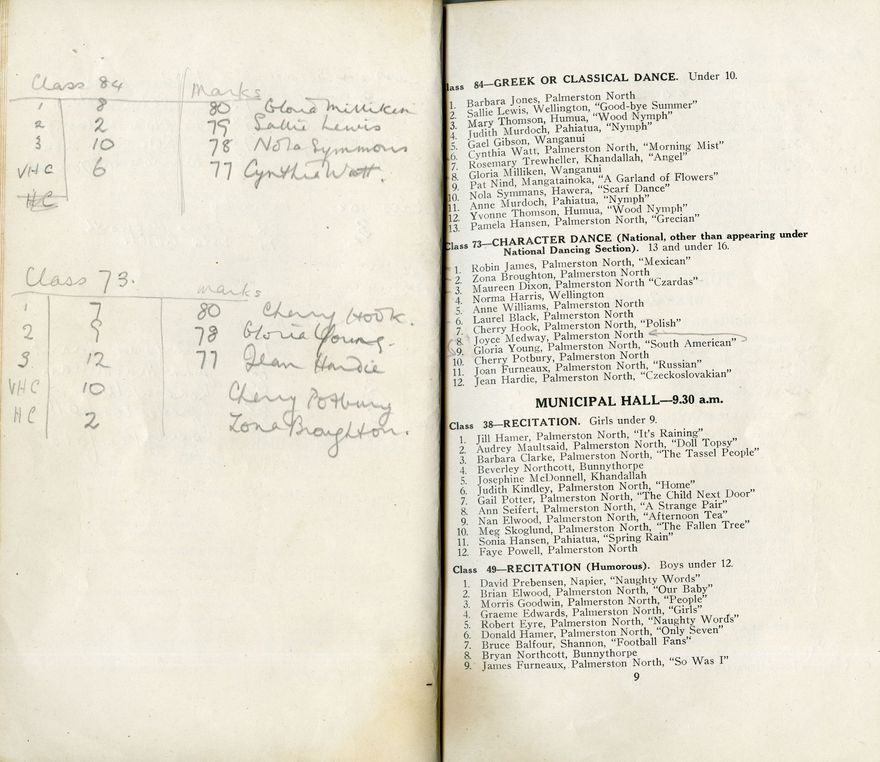 Class 84 Marks
1 8 80 Gloria Milliken
2 2 79 Sallie Lewis
3 10 78 Nola Symmons
VHC 6 77 Cynthia Watt.
HC
Class 73. marks
1 7 80 Cherry Hook.
2 9 78 Gloria Young.
3 12 77 Jean Hardie
VHC 10 Cherry Potbury
HC 2 Zona Broughton.
lass 84—GREEK OR CLASSICAL DANCE. Under 10.
1. Barbara Jones, Palmerston North
2. Sallie Lewis, Wellington, "Good-bye Summer"
3. Mary Thomson, Humua, "Wood Nymph"
4. Judith Murdoch, Pahiatua, "Nymph"
5. Gael Gibson, Wanganui
6. Cynthia Watt, Palmerston North, "Morning Mist"
7. Rosemary Trewheller, Khandallah, "Angel"
8. Gloria Milliken, Wanganui
9. Pat Nind, Mangatainoka, "A Garland of Flowers"
10. Nola Symmans, Hawera, "Scarf Dance"
11. Anne Murdoch, Pahiatua, "Nymph"
12. Yvonne Thomson, Humua, "Wood Nymph"
13. Pamela Hansen, Palmerston North, "Grecian"
Class 73—CHARACTER DANCE (National, other than appearing under
National Dancing Section). 13 and under 16.
1. Robin James, Palmerston North, "Mexican"
2. Zona Broughton, Palmerston North
3. Maureen Dixon, Palmerston North "Czardas"
4. Norma Harris, Wellington
5. Anne Williams, Palmerston North
6. Laurel Black, Palmerston North
7. Cherry Hook, Palmerston North, "Polish"
8. Joyce Medway, Palmerston North
9. Gloria Young, Palmerston North, "South American"
10. Cherry Potbury, Palmerston North
11. Joan Furneaux, Palmerston North, "Russian"
12. Jean Hardie, Palmerston North, "Czeckoslovakian"
MUNICIPAL HALL—9.30 a.m.
Class 38—RECITATION. Girls under 9.
1. Jill Hamer, Palmerston North, "It's Raining"
2. Audrey Maultsaid, Palmerston North, "Doll Topsy"
3. Barbara Clarke, Palmerston North, "The Tassel People"
4. Beverley Northcott, Bunnythorpe
5. Josephine McDonnell, Khandallah
6. Judith Kindley, Palmerston North, "Home"
7. Gail Potter, Palmerston North, "The Child Next Door"
8. Ann Seifert, Palmerston North, "A Strange Pair"
9. Nan Elwood, Palmerston North, "Afternoon Tea"
10. Meg Skoglund, Palmerston North, "The Fallen Tree"
11. Sonia Hansen, Pahiatua, "Spring Rain"
12. Faye Powell, Palmerston North
Class 49—RECITATION (Humorous). Boys under 12.
1. David Prebensen, Napier, "Naughty Words"
2. Brian Elwood, Palmerston North, "Our Baby"
3. Morris Goodwin, Palmerston North, "People"
4. Graeme Edwards, Palmerston North, "Girls"
5. Robert Eyre, Palmerston North, "Naughty Words"
6. Donald Hamer, Palmerston North, "Only Seven"
7. Bruce Balfour, Shannon, "Football Fans"
8. Bryan Northcott, Bunnythorpe
9. James Furneaux, Palmerston North, "So Was I"
9